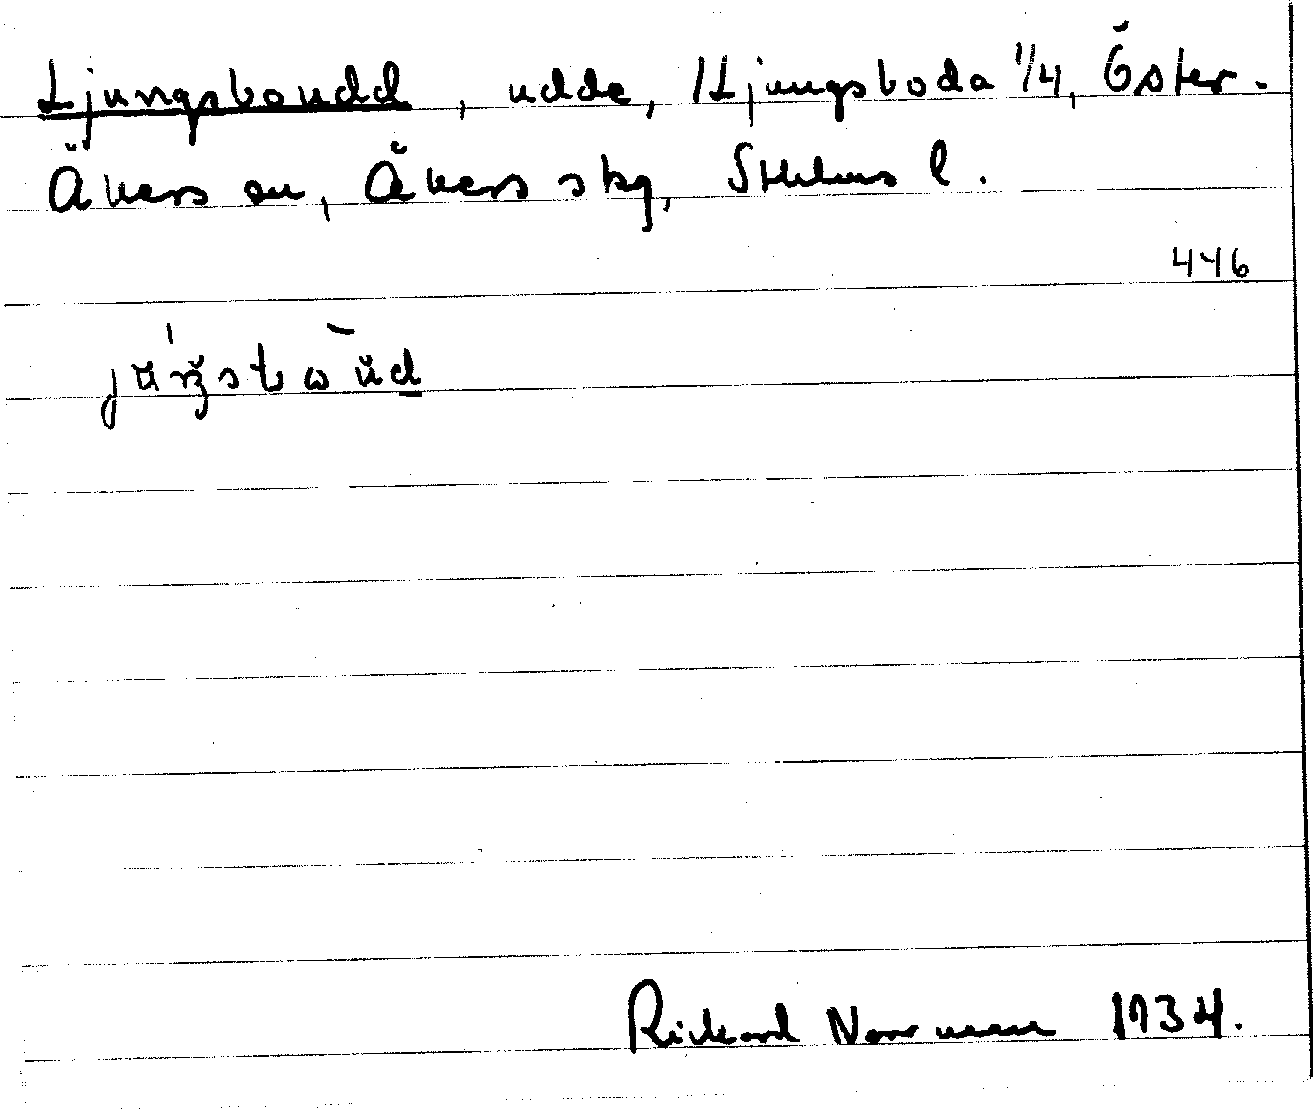 Ljungsboudd, udde, /Ljungsboda 1/4, Öster-
Åkers sn, Åkers skg, Sthlms l.
446
Rickard Norrman 1934.